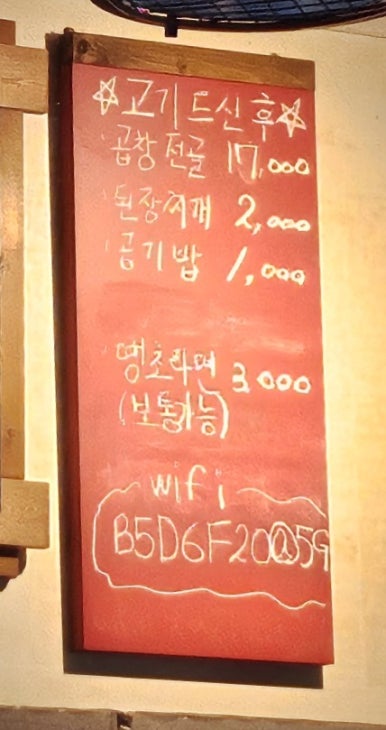 ☆고기 드신 후☆
곱창전골 17,000
된장찌개 2,000
공기밥 1,000
땡초라면 3,000
(보통가능)
wifi